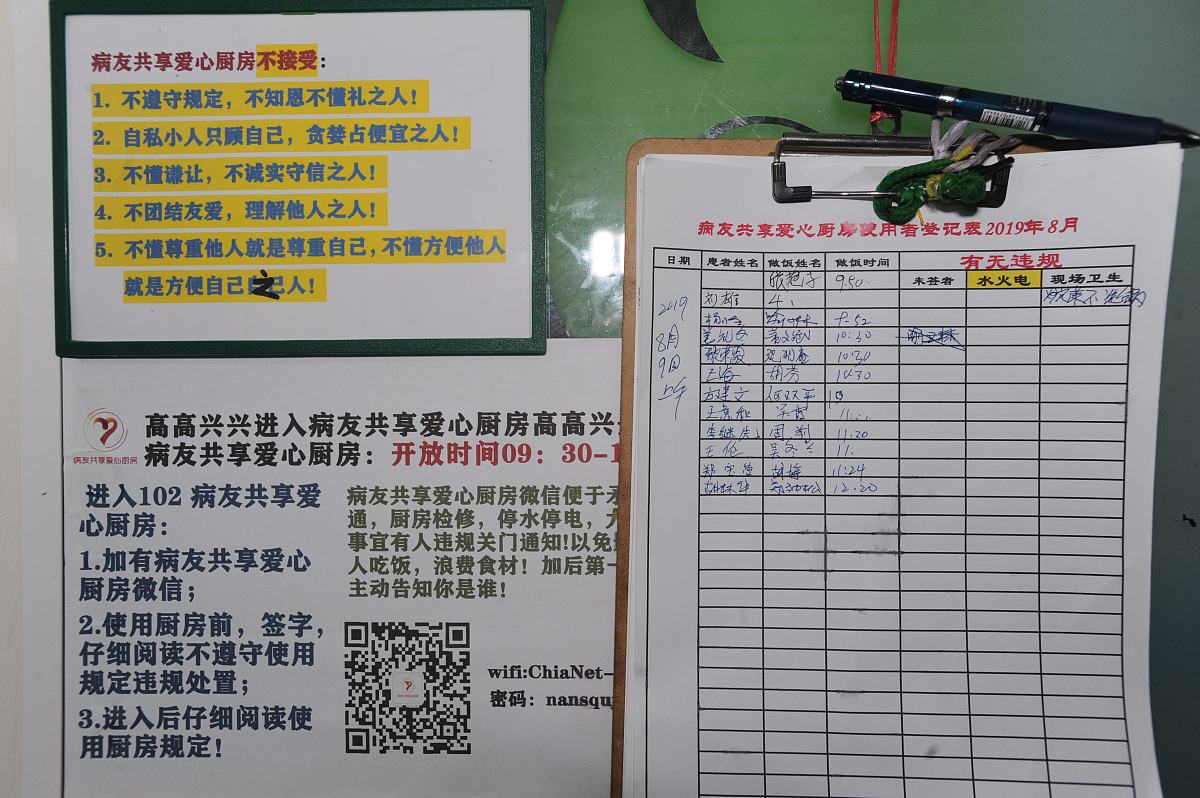 病友共享爱心厨房不接受：
1. 不遵守规定，不知恩不懂礼之人！
2. 自私小人只顾自己，贪婪占便宜之人！
3. 不懂谦让，不诚实守信之人！
4. 不团结友爱，理解他人之人！
5. 不懂尊重他人就是尊重自己，不懂方便他人
就是方便自己之人！
病友共享爱心厨房
高高兴兴进入病友共享爱心厨房高高兴
病友共享爱心厨房：开放时间09：30-1
进入102 病友共享爱
心厨房：
1.加有病友共享爱心
厨房微信；
2.使用厨房前，签字，
仔细阅读不遵守使用
规定违规处置；
3.进入后仔细阅读使
用厨房规定！
病友共享爱心厨房微信便于
通，厨房检修，停水停电，
事宜有人违规关门通知!以免
人吃饭，浪费食材！加后第一
主动告知你是谁！
wifi:ChiaNet-
密码：nansqu
病友共享爱心厨房使用者登记表2019年8月
日期 患者姓名 做饭姓名 做饭时间 有无违规
未签者 水火电 现场卫生
9.50
2019
8月
9日
上午
9-52
10:30
10:30
王海 胡芳 10:30
11
11.20
王伦 11
11:24
12.20